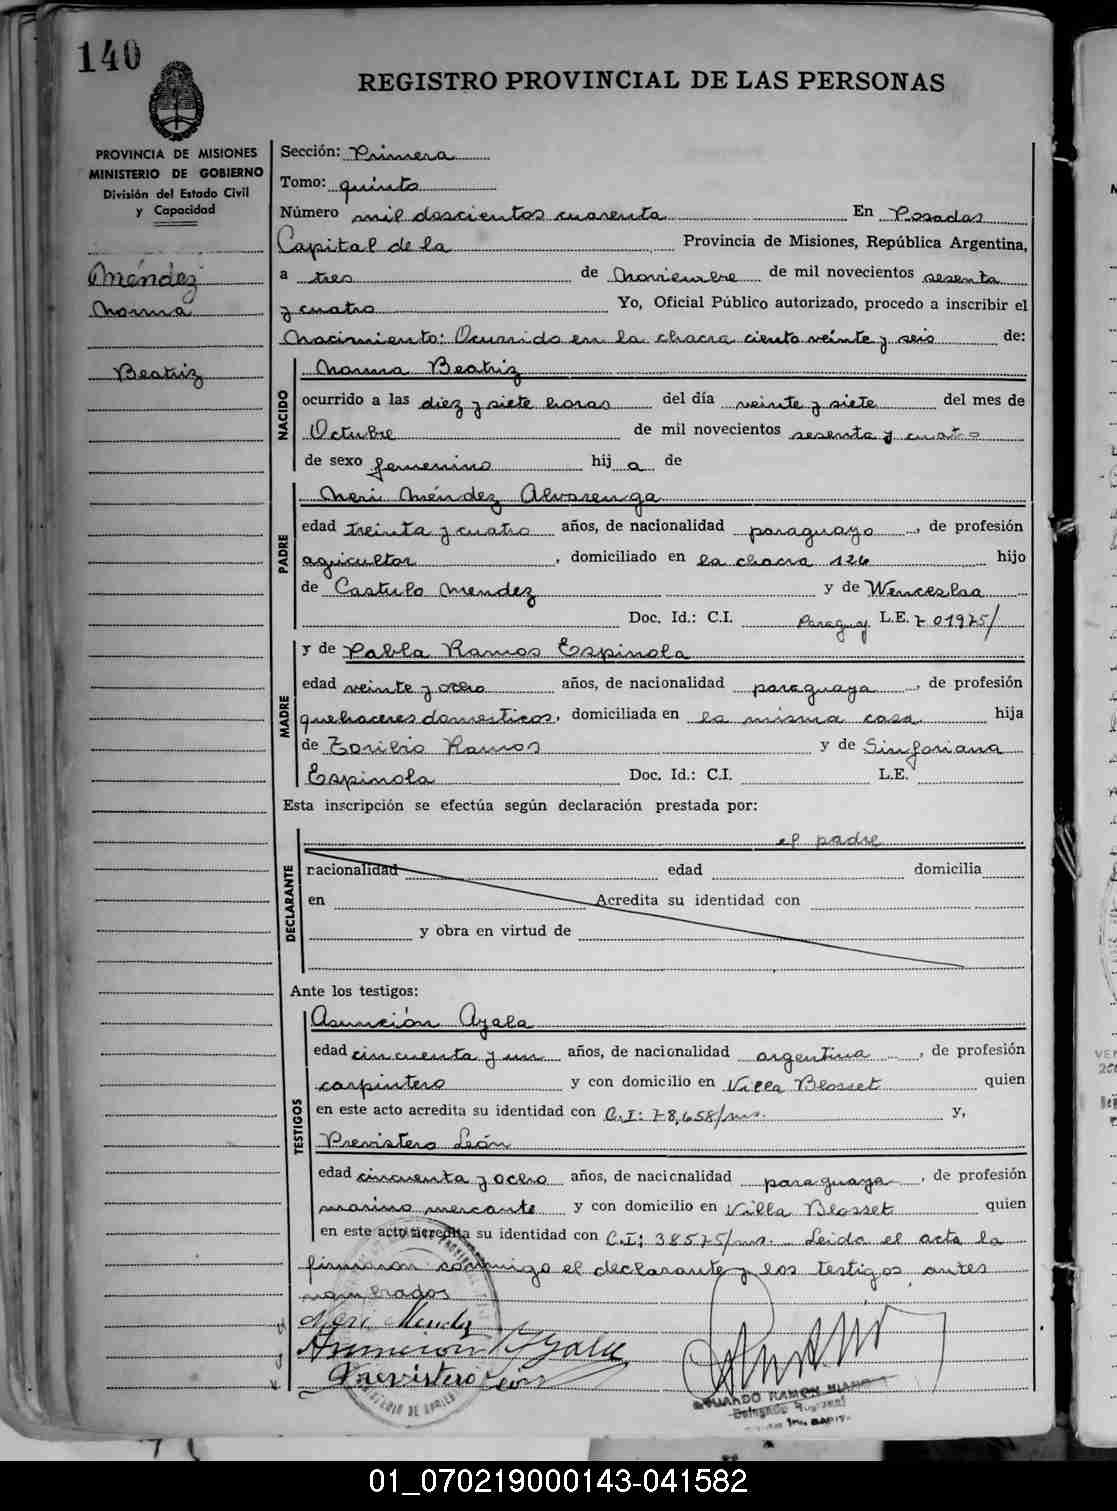 140
REGISTRO PROVINCIAL DE LAS PERSONAS
PROVINCIA DE MISIONES
MINISTERIO DE GOBIERNO
División del Estado Civil
y Capacidad
Méndez
Norma
Beatriz
Sección: Primera
Tomo: quinto
Número mil doscientos cuarenta En Posadas
Capital de la Provincia de Misiones, República Argentina,
a tres de Noviembre de mil novecientos sesenta
y cuatro Yo, Oficial Público autorizado, procedo a inscribir el
Nacimiento: Ocurrido en la chacra ciento veinte y seis de:
NACIDO
Norma Beatriz
ocurrido a las diez y siete horas del día veinte y siete del mes de
Octubre de mil novecientos sesenta y cuatro
de sexo femenino hij a de
PADRE
Neri Méndez Alvarenga
edad treinta y cuatro años, de nacionalidad paraguayo, de profesión
agricultor, domiciliado en la chacra 126 hijo
de Castulo Mendez y de Wenceslaa
Doc. Id.: C.I. Paraguay L.E. 701975/
MADRE
y de Pabla Ramos Espinola
edad veinte y ocho años, de nacionalidad paraguaya, de profesión
quehaceres domesticos, domiciliada en la misma casa hija
de Toribio Ramos y de Sinforiana
Espinola Doc. Id.: C.I. L.E.
Esta inscripción se efectúa según declaración prestada por:
DECLARANTE
el padre
nacionalidad edad domicilia
en Acredita su identidad con
y obra en virtud de
Ante los testigos:
TESTIGOS
Asunción Ayala
edad cincuenta y un años, de nacionalidad argentina, de profesión
carpintero y con domicilio en Villa Blosset quien
en este acto acredita su identidad con C.I: 78,658/ms. y,
Previstero León
edad cincuenta y ocho años, de nacionalidad paraguaya, de profesión
marino mercante y con domicilio en Villa Blosset quien
en este acto acredita su identidad con C.I: 38575/ms. Leida el acta la
firmaron conmigo el declarante y los testigos antes
nombrados
Neri Mendez
Asuncion Ayala
Previstero León
EDUARDO RAMON
Delegado
01_070219000143-041582